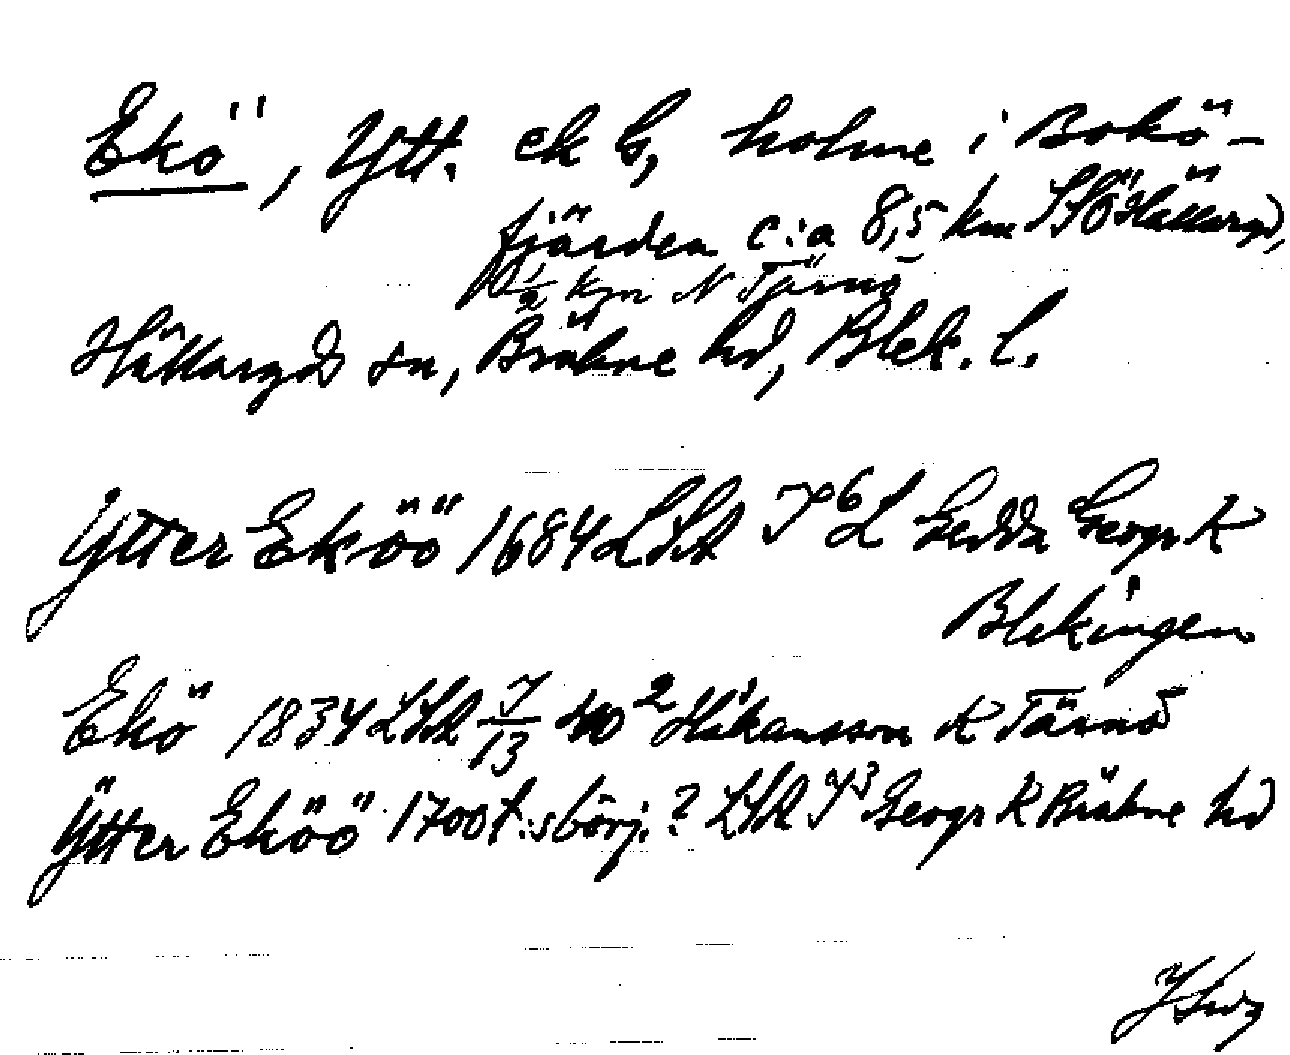 Ekö, Ytt. ek b, holme i Bokö-
fjärden c:a 8,5 km SSÖ Hällaryd,
1/2 km N Tärnö
Hällaryds sn, Bräkne hd, Blek. l.
Ytter Eköö 1684 LSA J⁶L Gedda Geogr K
Blekingen
Ekö 1834 LSA 7/13 Håkansson K Tärnö
Ÿtter Eköö 1700t:s börj.? LSA J³ Geogr K Bräkne hd